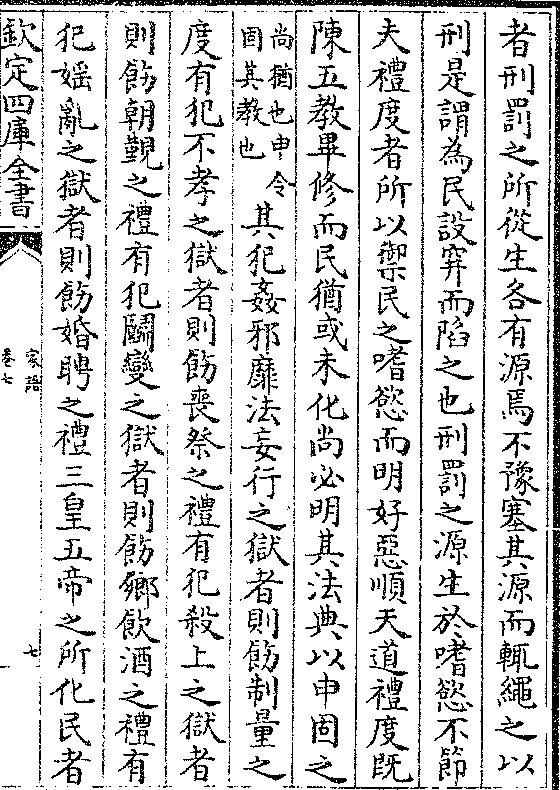 者刑罰之所從生各有源焉不豫塞其源而輒繩之以
刑是謂為民設穽而陷之也刑罰之源生於嗜慾不節
夫禮度者所以禦民之嗜慾而明好惡順天道禮度既
陳五教畢修而民猶或未化尚必明其法典以申固之
尚猶也申令
固其教也
其犯姦邪靡法妄行之獄者則飭制量之
度有犯不孝之獄者則飭喪祭之禮有犯殺上之獄者
則飭朝覲之禮有犯鬭變之獄者則飭鄉飲酒之禮有
犯婬亂之獄者則飭婚聘之禮三皇五帝之所化民者
欽定四庫全書
家語
卷七
七